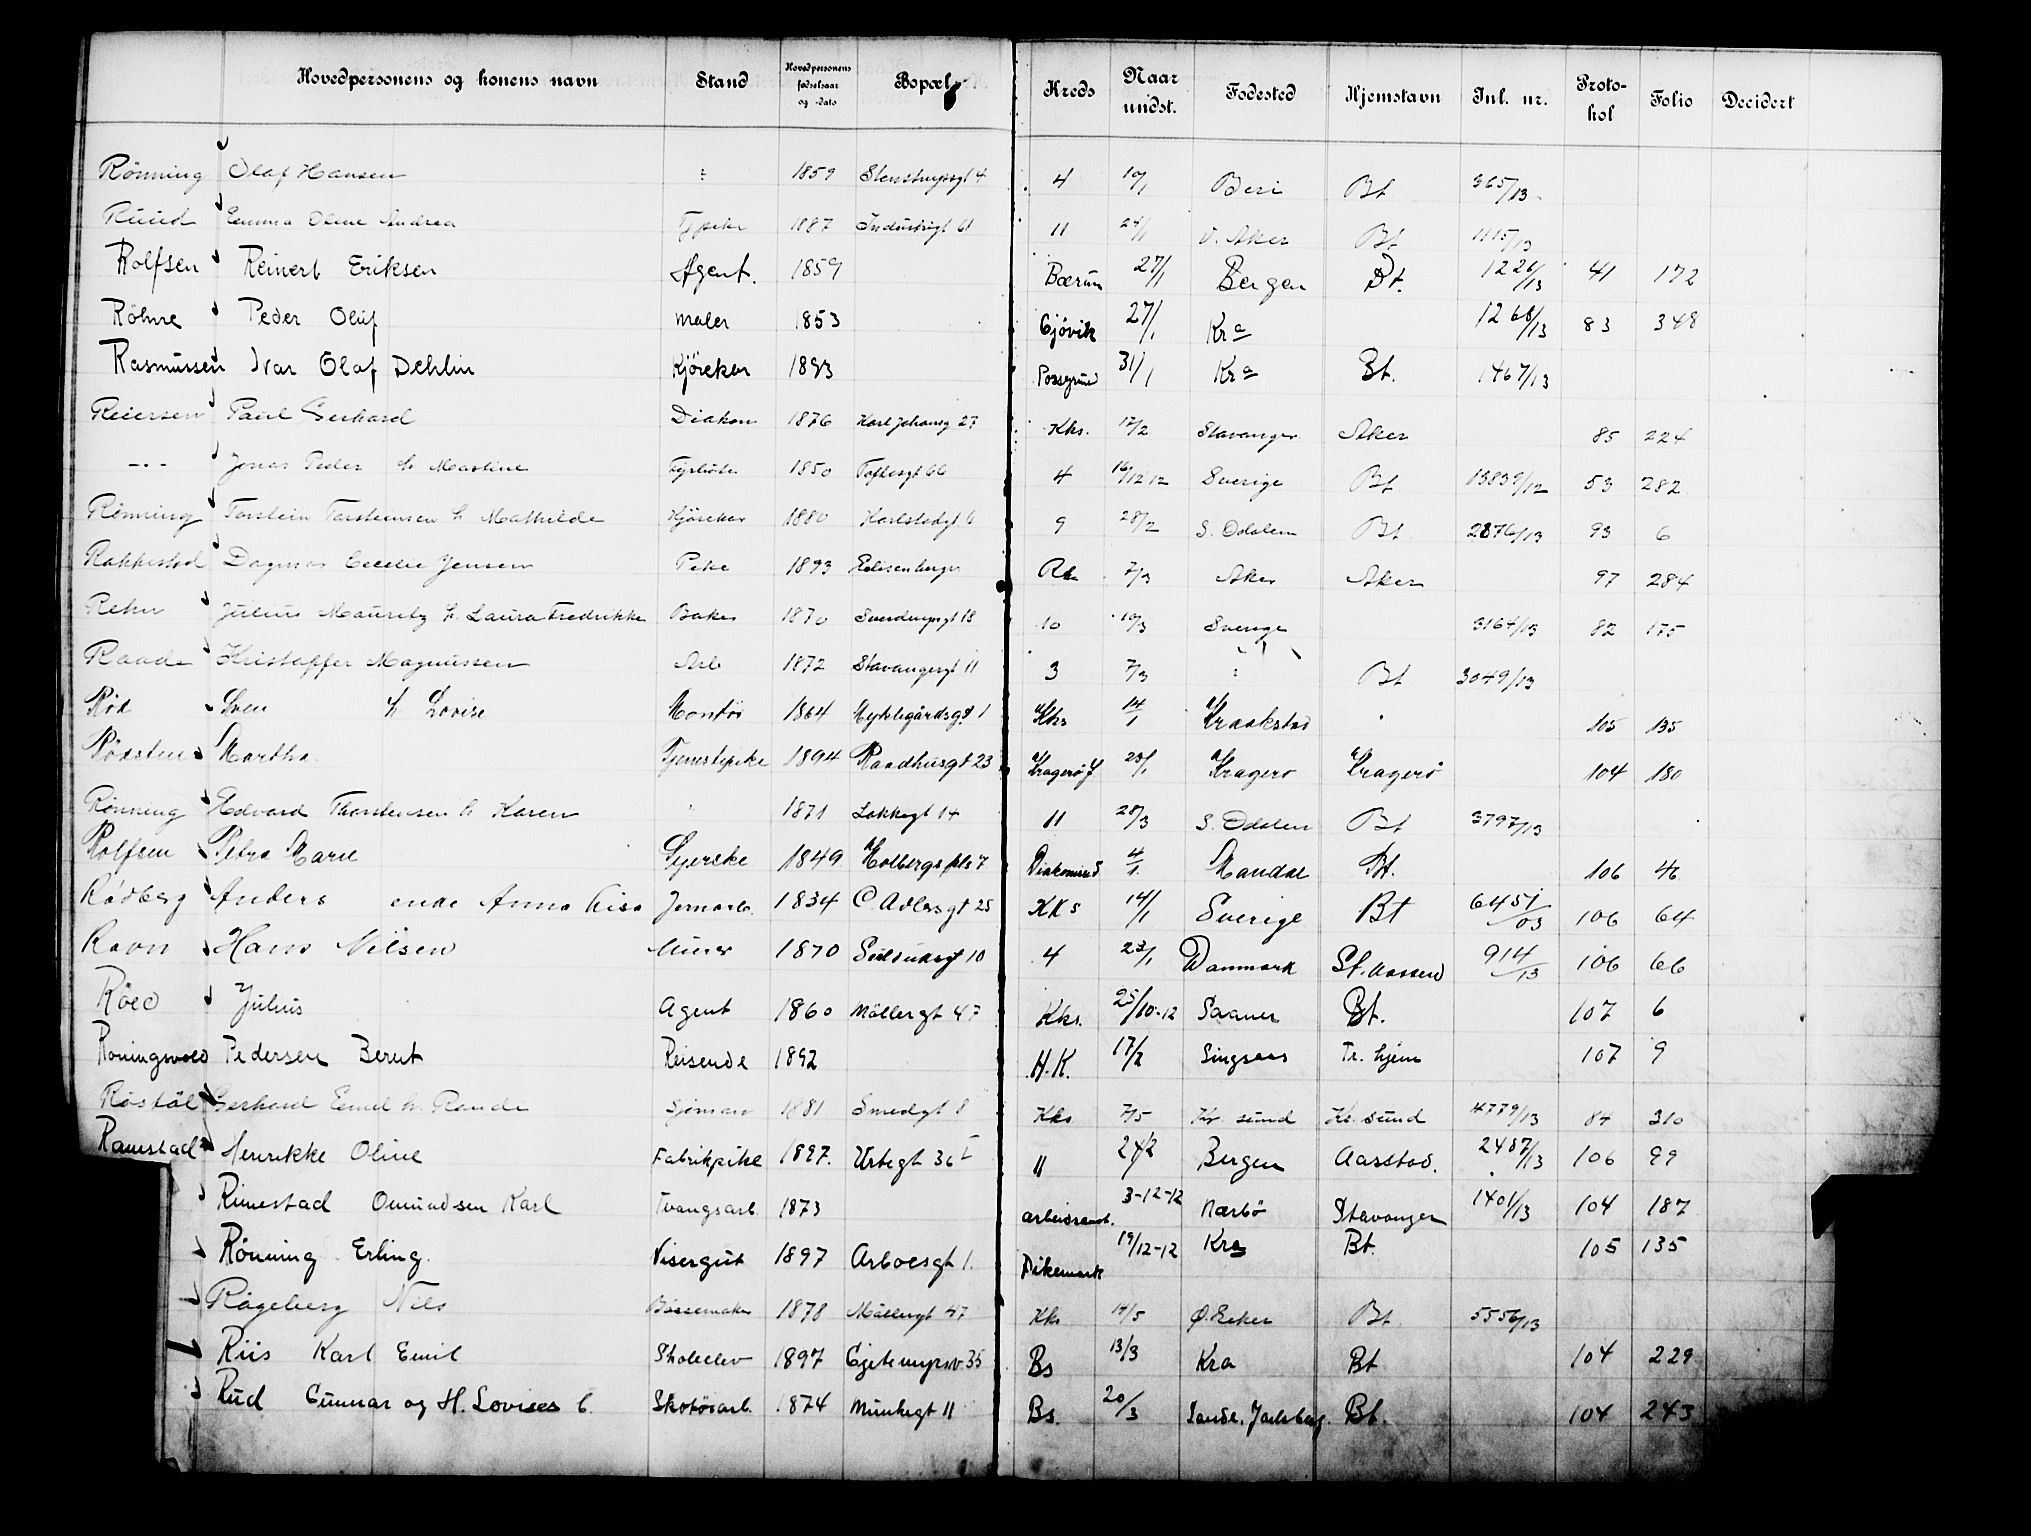 Hovedpersonens og konens navn Stand Hovedpersonens fødselsaar og -dato Bopæl Kreds Naar undst. Fødested Hjemstavn Jnl. nr. Proto-kol Folio Decidert
Rönning Olaf Hansen : 1859 Stenstrupsgt 4 4 10/1 Beri Bt 365/13
Ruud Emma Oline Andrea Tjpike 1887 Industrigt 61 11 24/1 V. Aker Bt 1115/13
Rolfsen Reinert Eriksen Agent. 1859 Bærum 27/1 Bergen Bt. 1226/13 41 172
Röhne Peder Oluf maler 1853 Gjövik 27/1 Kra 1268/13 83 348
Rasmussen Ivar Olaf Dehlin Kjörekar 1893 Porsgrund 31/1 Kra Bt. 1467/13
Reiersen Paul Gerhard Diakon 1876 Karl Johansg 27 Kks. 17/2 Stavanger Aker 85 224
-"- Jonas Peder h. Martine Fyrböter 1850 Toftesgt 66 4 16/12 12 Sverige Bt 13839/12 53 282
Rönning Torstein Torsteinsen h. Mathilde Kjörekar 1880 Karlstadgt 6 9 28/2 S. Odalen Bt 2876/13 93 6
Rakkestad Dagmar Cecelie Jensen Pike 1893 Elisenbergv 7/3 Aker Aker 97 284
Rehn Julius Mauritz h. Laura Fredrikke Baker 1870 Sverdrupsgt 18 10 10/3 Sverige 3164/13 82 175
Raade Kristoffer Magnussen Arb 1872 Stavangergt 11 3 7/3 : Bt 3049/13
Röd Sven h Lovise Montör 1864 Nyklegårdsgt 1 Kks 14/1 Kraakstad 105 135
Rödsten Martha Tjenestepike 1894 Raadhusgt 23 Kragerö f 28/1 Kragerø Kragerö 104 180
Rönning Edvard Thorstensen h. Karen 1871 Lakkegt 14 11 28/3 S. Odalen Bt 3797/13
Rolfsen Petra Marie Syerske 1849 Holbergs pls 7 4/1. Mandal Bt. 106 46
Rödberg Anders enke Anna Lisa Jernarb. 1834 C. Adlersgt 25 KKs 14/1 Sverige Bt 6451/03 106 64
Ravn Hans Nilsen Murer 1870 Seilduksgt 10 4 23/1 Danmark 914/13 106 66
Röed Julius Agent 1860 Möllergt 47 Kks. 25/10-12 Saaner Bt. 107 6
Roningsvold Pedersen Bernt Reisende 1892 H.K. 17/2 Singsaas Tr. hjem 107 9
Röstöl Gerhard Emil h. Ragnde Sjöman 1881 Smedgt 8 Kks 7/5 Kr. sund Kr. sund 4779/13 84 310
Ramestad Henrikke Oline Fabrikpike 1897. Urtegt 36 I 11 24/2 Bergen Aarstad. 2487/13 106 99
Rimestad Omundsen Karl Tvangsarb. 1873 arbeidsanst. 3-12-12 Nærbö Stavanger 1401/13 104 187
Rönning Erling. Visergut 1897 Arboesgt 1. Dikemark 19/12-12 Kra Bt. 105 135
Rågeberg Nils Börsemaker 1878 Möllergt 47 Kks 14/5 Ø. Eker Bt 5556/13
Riis Karl Emil Skoleelev 1897 Gjetemyrsv. 35 Bs 13/3 Kra Bt 104 229
Rud Gunnar og H. Lovises b. Skotöiarb. 1874 Munkegt 11 Bs. 20/3 Sande, Jarlsberg. Bt. 104 243